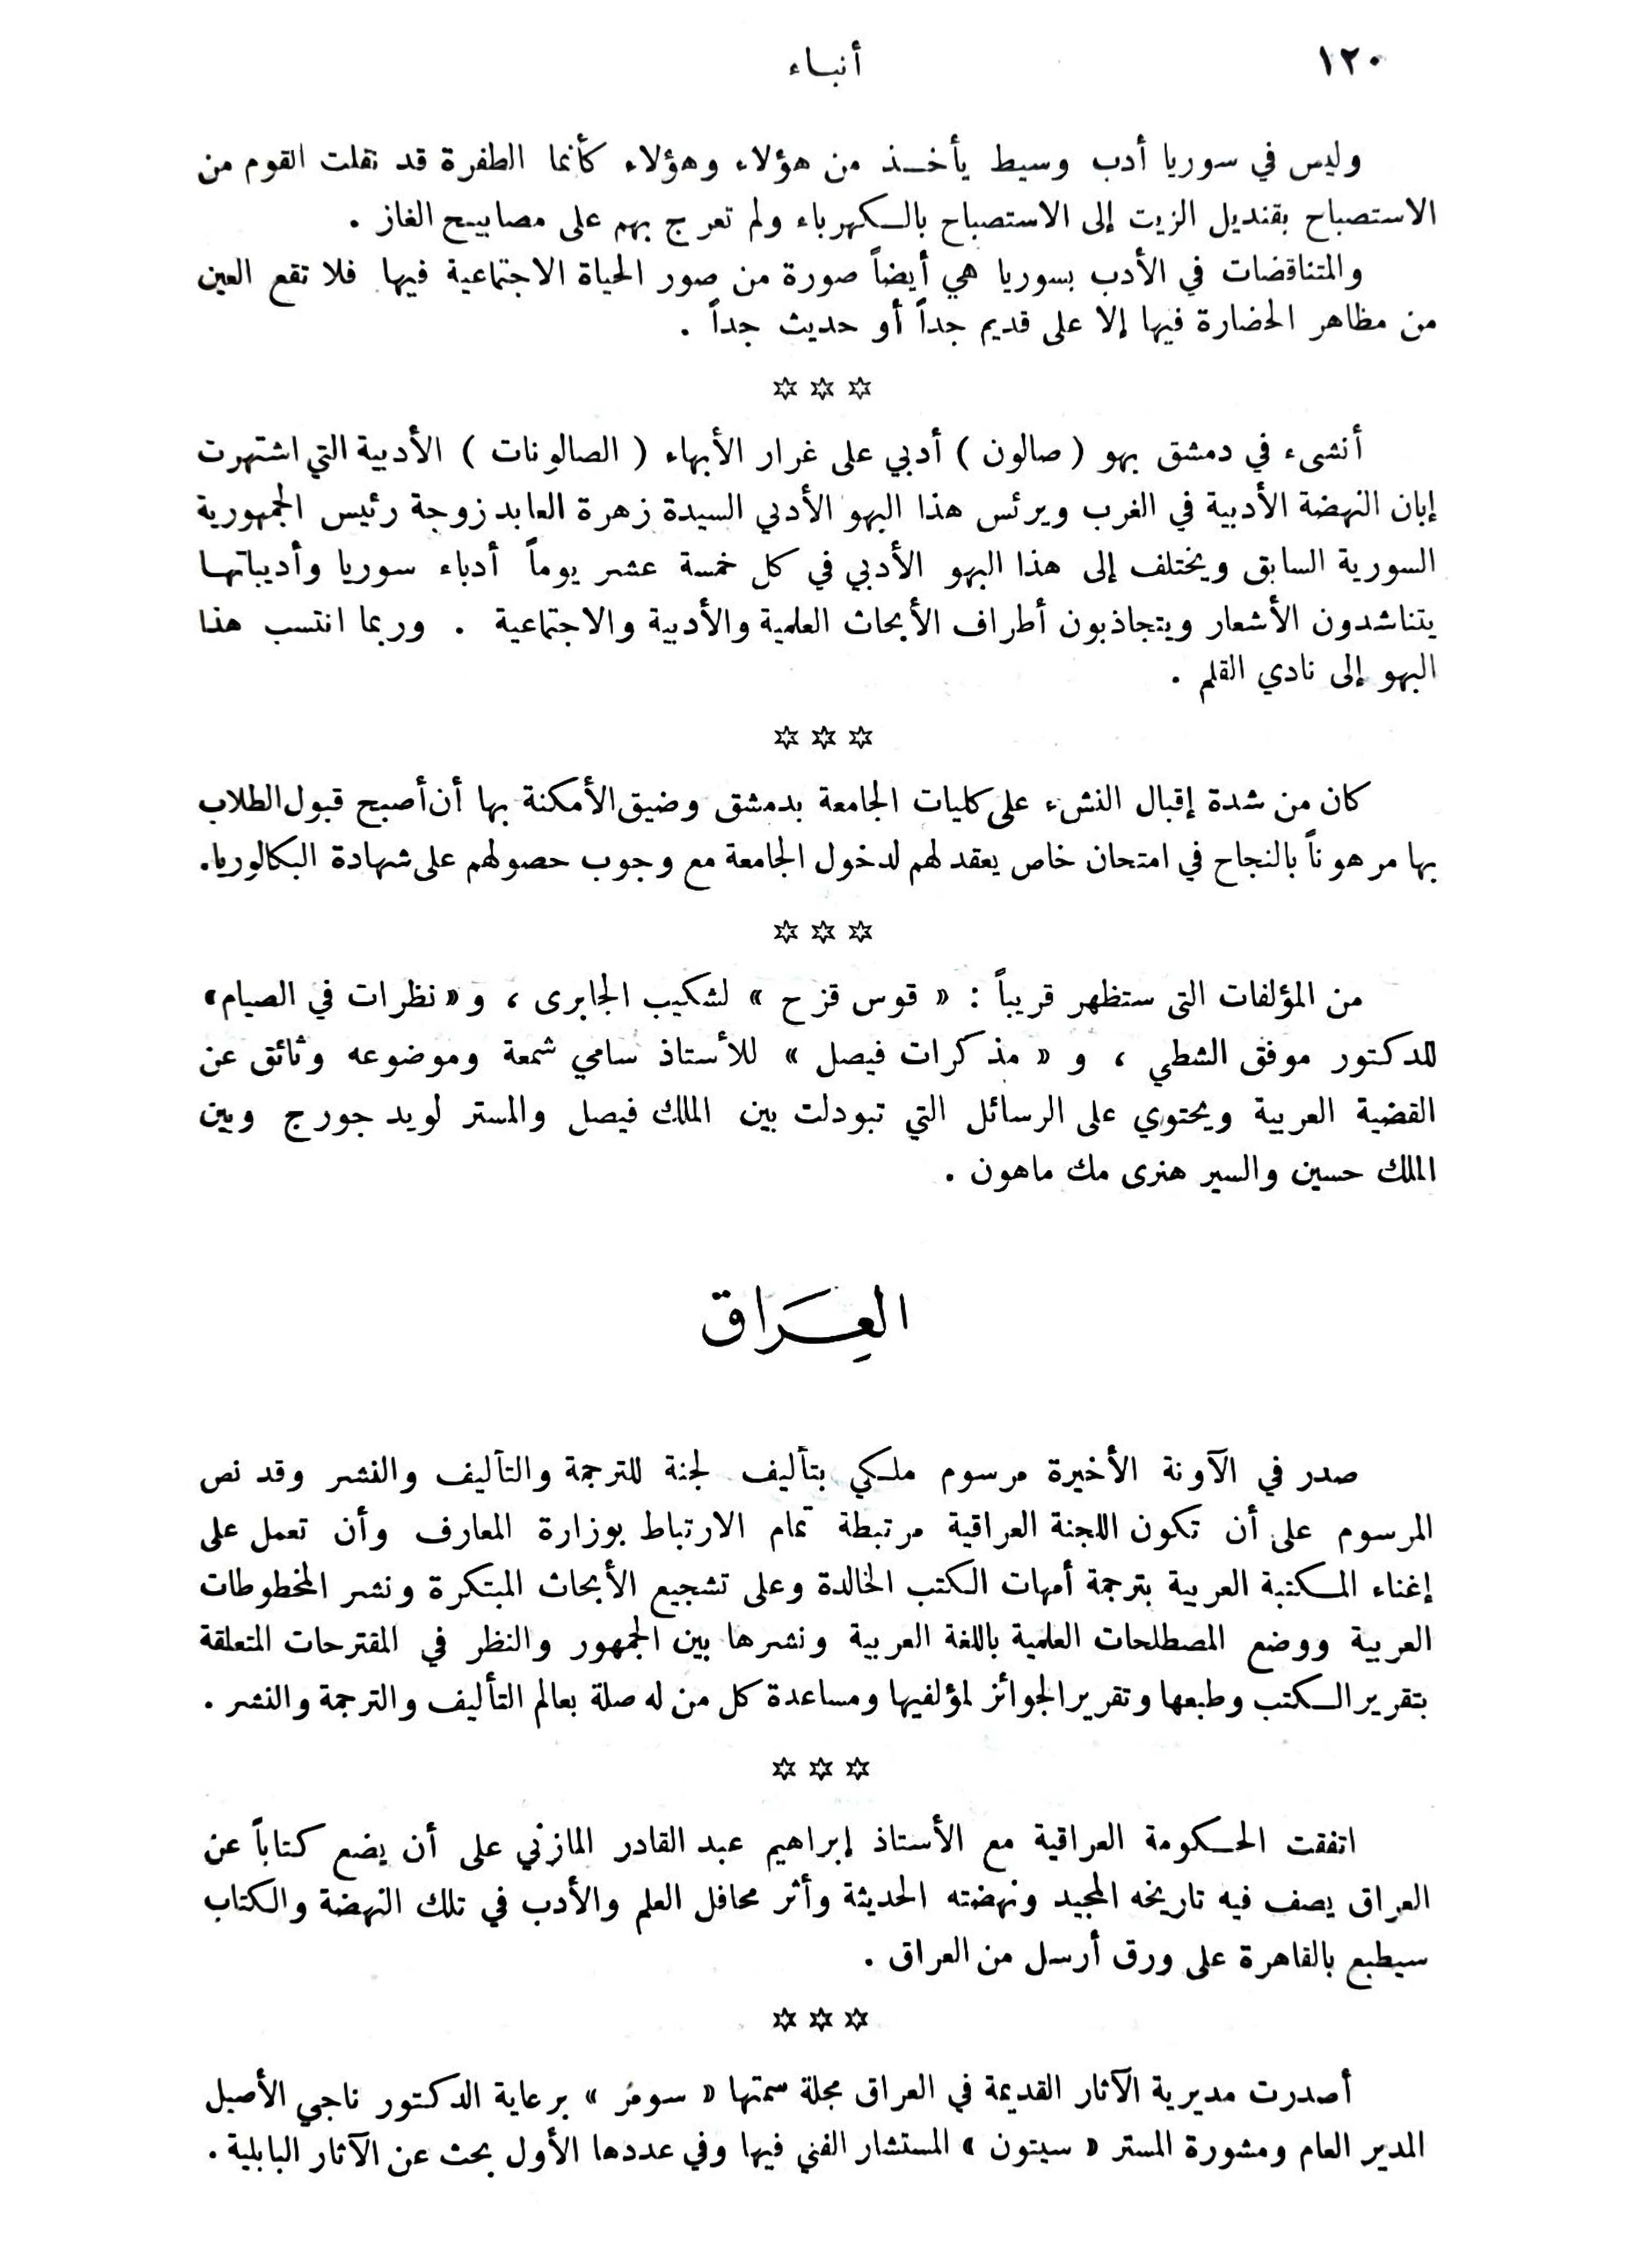 ١٢٠
أنباء
وليس في سوريا أدب وسيط يأخذ من هؤلاء وهؤلاء كأنما الطفرة قد نقلت القوم من
الاستصباح بقنديل الزيت إلى الاستصباح بالكهرباء ولم تعرج بهم على مصابيح الغاز .
والمتناقضات في الأدب بسوريا هي أيضاً صورة من صور الحياة الاجتماعية فيها فلا تقع العين
من مظاهر الحضارة فيها إلا على قديم جداً أو حديث جداً .
☆ ☆ ☆
أنشىء في دمشق بهو ( صالون ) أدبي على غرار الأبهاء ( الصالونات ) الأدبية التي اشتهرت
إبان النهضة الأدبية في الغرب ويرئس هذا البهو الأدبي السيدة زهرة العابد زوجة رئيس الجمهورية
السورية السابق ويختلف إلى هذا البهو الأدبي في كل خمسة عشر يوماً أدباء سوريا وأديباتها
يتناشدون الأشعار ويتجاذبون أطراف الأبحاث العلمية والأدبية والاجتماعية . وربما انتسب هذا
البهو إلى نادي القلم .
☆ ☆ ☆
كان من شدة إقبال النشء على كليات الجامعة بدمشق وضيق الأمكنة بها أن أصبح قبول الطلاب
بها مرهوناً بالنجاح في امتحان خاص يعقد لهم لدخول الجامعة مع وجوب حصولهم على شهادة البكالوريا.
☆ ☆ ☆
من المؤلفات التى ستظهر قريباً : « قوس قزح » لشكيب الجابرى ، و « نظرات في الصيام »
للدكتور موفق الشطي ، و « مذكرات فيصل » للأستاذ سامي شمعة وموضوعه وثائق عن
القضية العربية ويحتوي على الرسائل التي تبودلت بين الملك فيصل والمستر لويد جورج وبين
الملك حسين والسير هنرى مك ماهون .
العِرَاق
صدر في الآونة الأخيرة مرسوم ملكي بتأليف لجنة للترجمة والتأليف والنشر وقد نص
المرسوم على أن تكون اللجنة العراقية مرتبطة تمام الارتباط بوزارة المعارف وأن تعمل على
إغناء المكتبة العربية بترجمة أمهات الكتب الخالدة وعلى تشجيع الأبحاث المبتكرة ونشر المخطوطات
العربية ووضع المصطلحات العلمية باللغة العربية ونشرها بين الجمهور والنظر في المقترحات المتعلقة
بتقرير الكتب وطبعها وتقرير الجوائز لمؤلفيها ومساعدة كل من له صلة بعالم التأليف والترجمة والنشر .
☆ ☆ ☆
اتفقت الحكومة العراقية مع الأستاذ إبراهيم عبد القادر المازني على أن يضع كتاباً عن
العراق يصف فيه تاريخه المجيد ونهضته الحديثة وأثر محافل العلم والأدب في تلك النهضة والكتاب
سيطبع بالقاهرة على ورق أرسل من العراق .
☆ ☆ ☆
أصدرت مديرية الآثار القديمة في العراق مجلة سمتها « سومَر » برعاية الدكتور ناجي الأصيل
المدير العام ومشورة المستر « سيتون » المستشار الفني فيها وفي عددها الأول بحث عن الآثار البابلية .